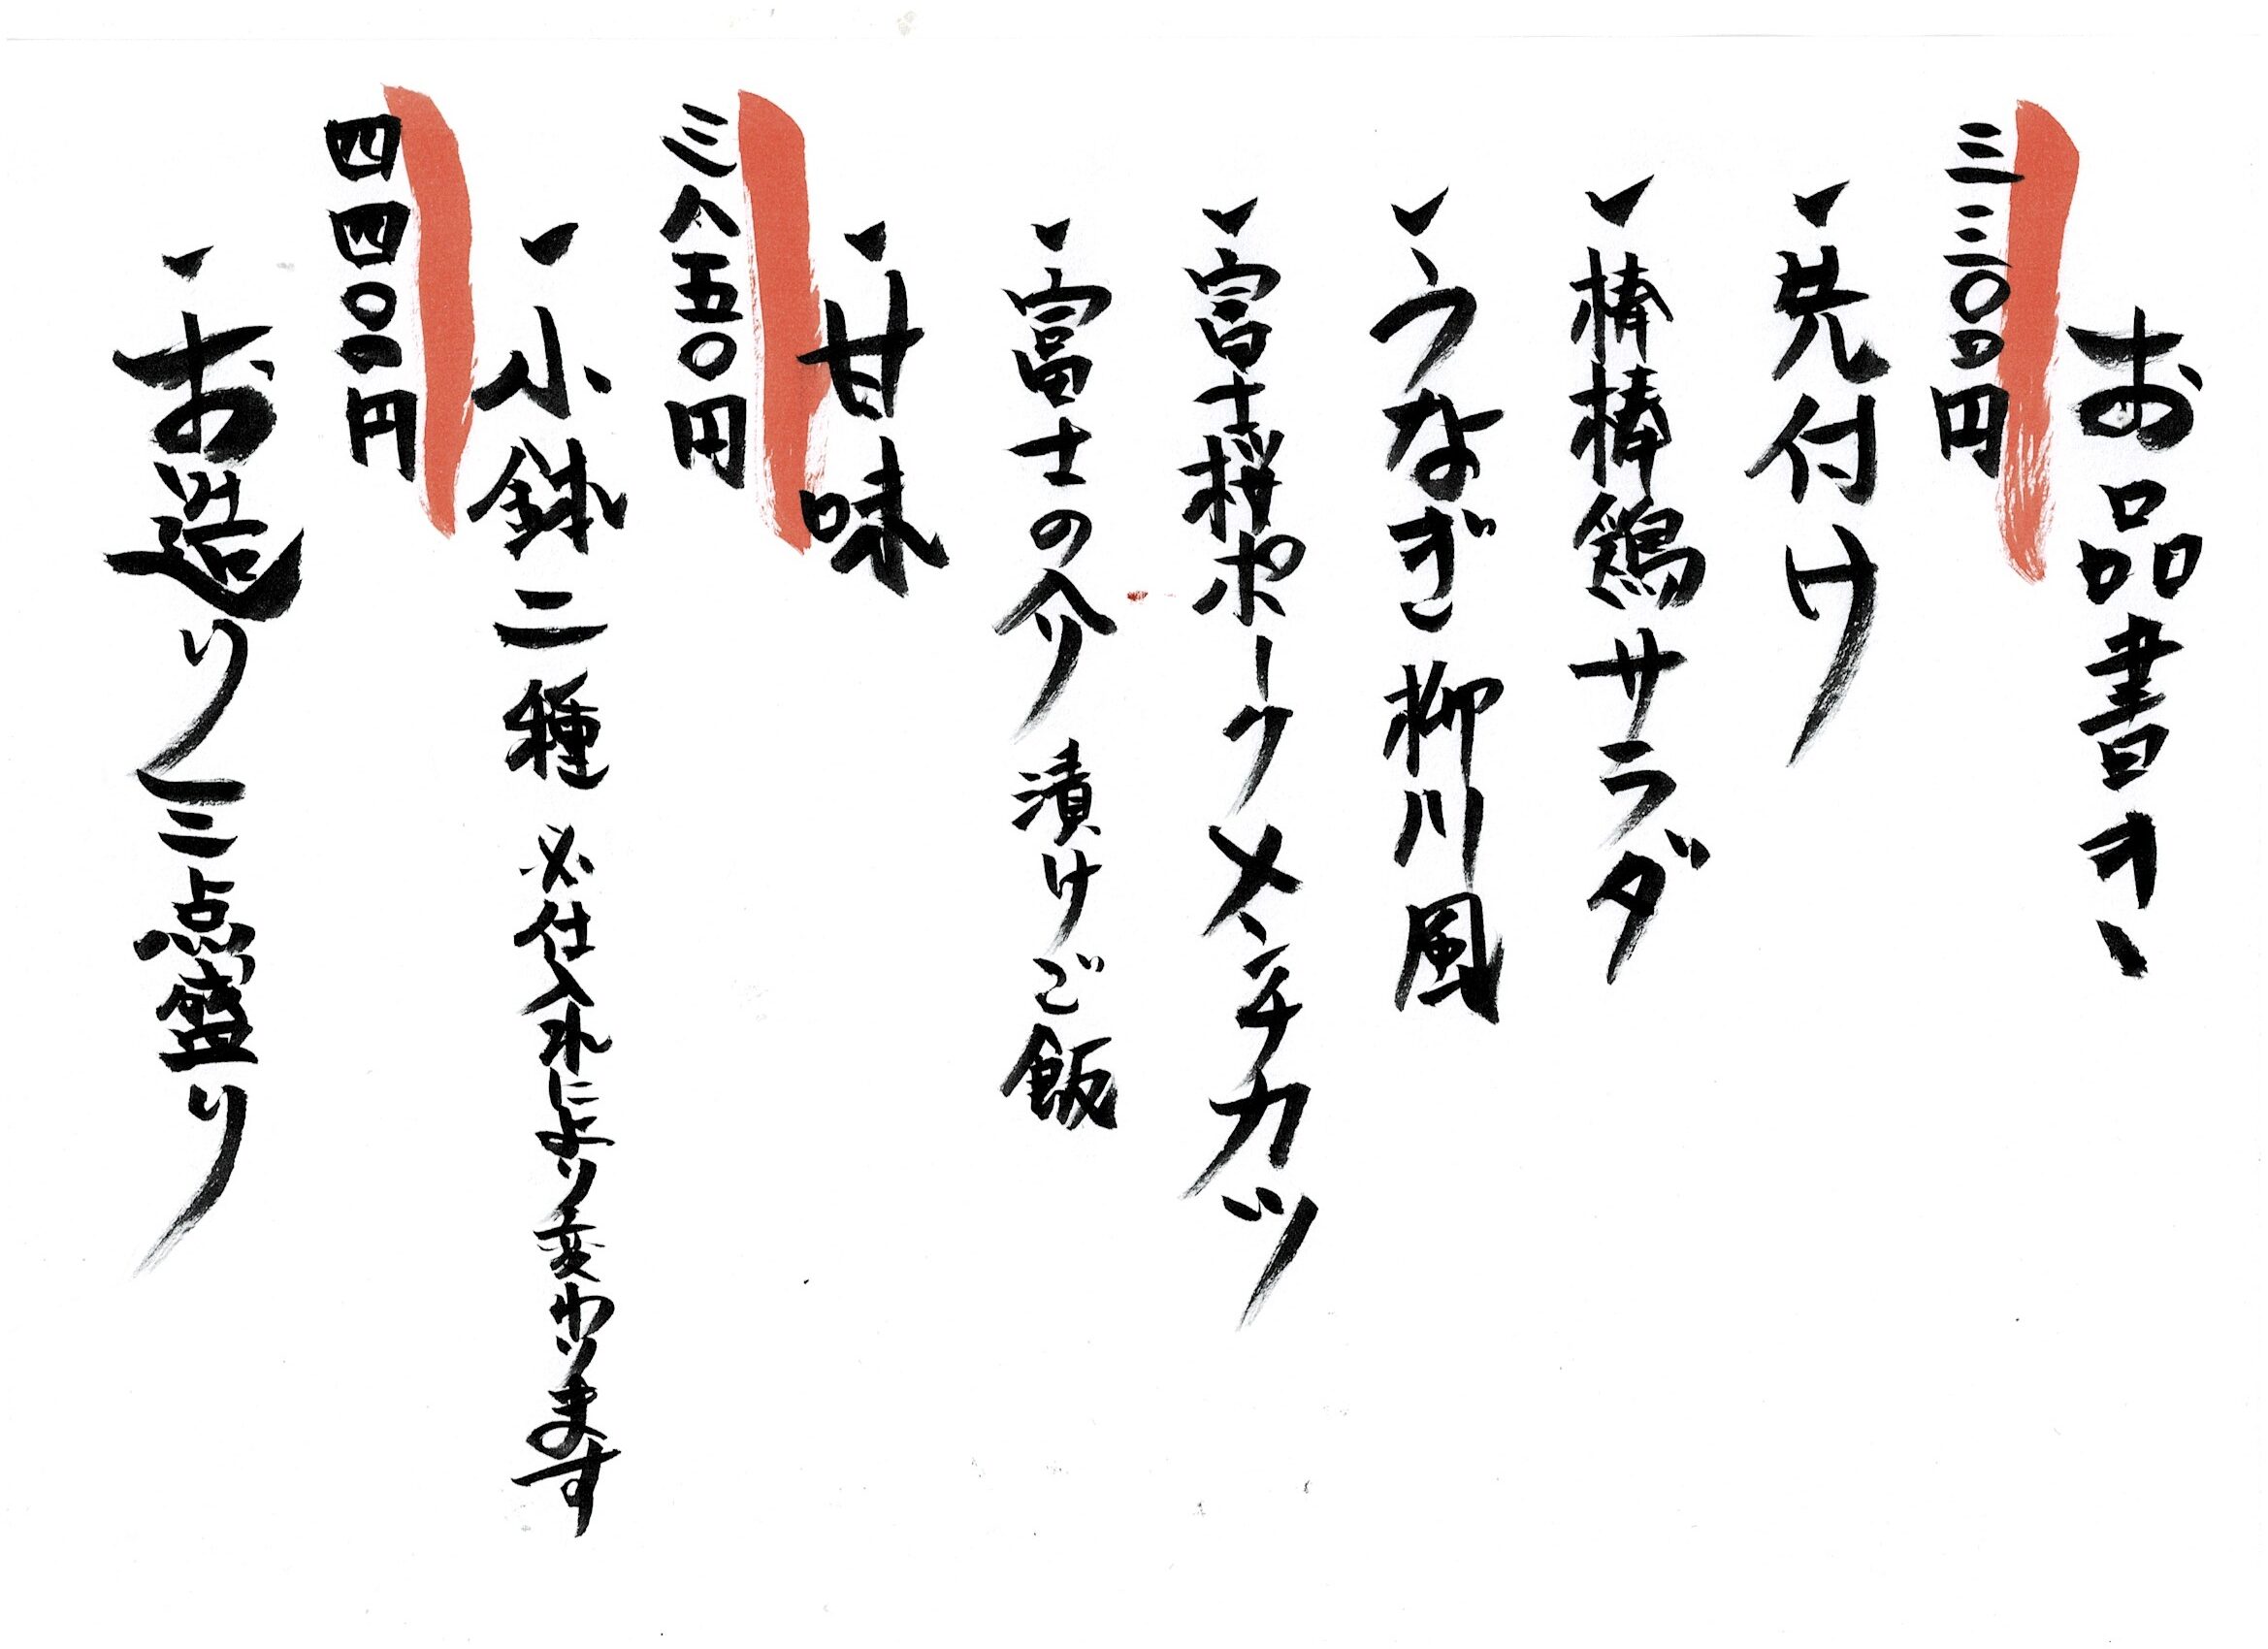 お品書き
三三〇〇円
先付け
棒棒鶏サラダ
うなぎ柳川風
富士桜ポークメンチカツ
富士の介 漬けご飯
甘味
三八五〇円
小鉢二種 ※仕入れにより変わります
四四〇〇円
お造り三点盛り